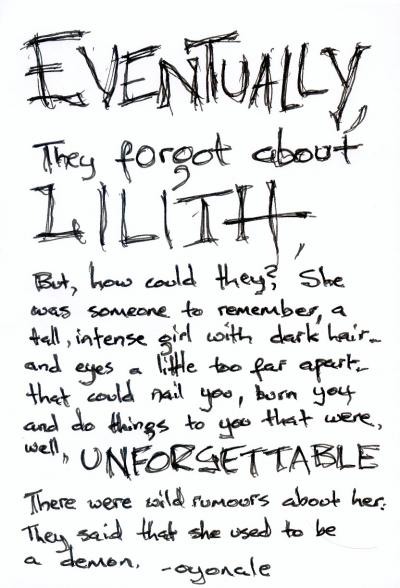 EVENTUALLY,
They forgot about
LILITH,
But, how could they? She
was someone to remember, a
tall, intense girl with dark hair
and eyes a little too far apart
that could nail you, burn you
and do things to you that were,
well, UNFORGETTABLE
There were wild rumours about her.
They said that she used to be
a demon. -oyonale